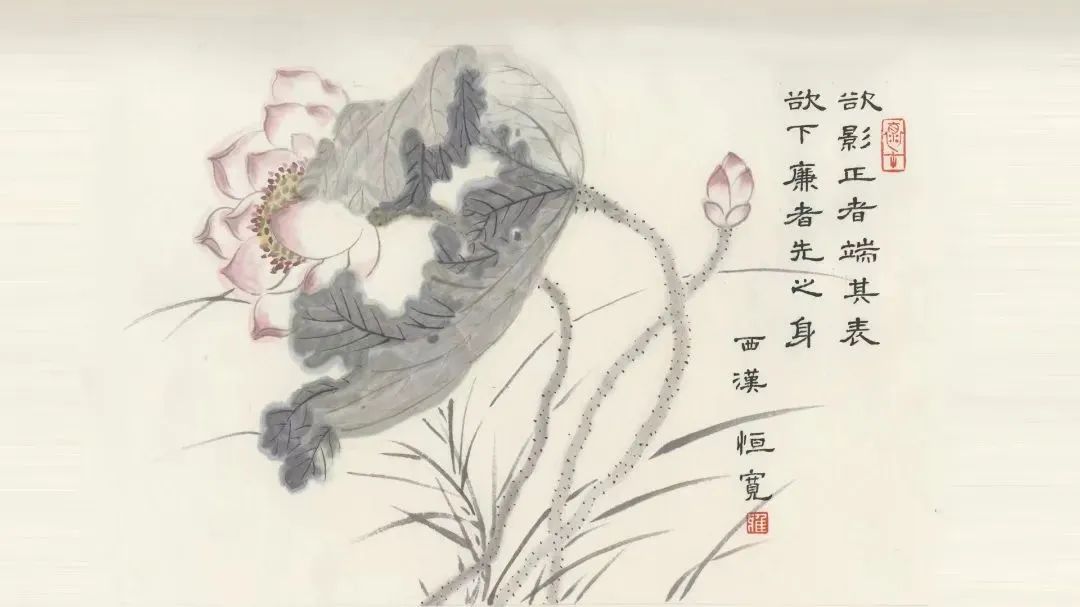 欲影正者端其表
欲下廉者先之身
西漢 恒寬